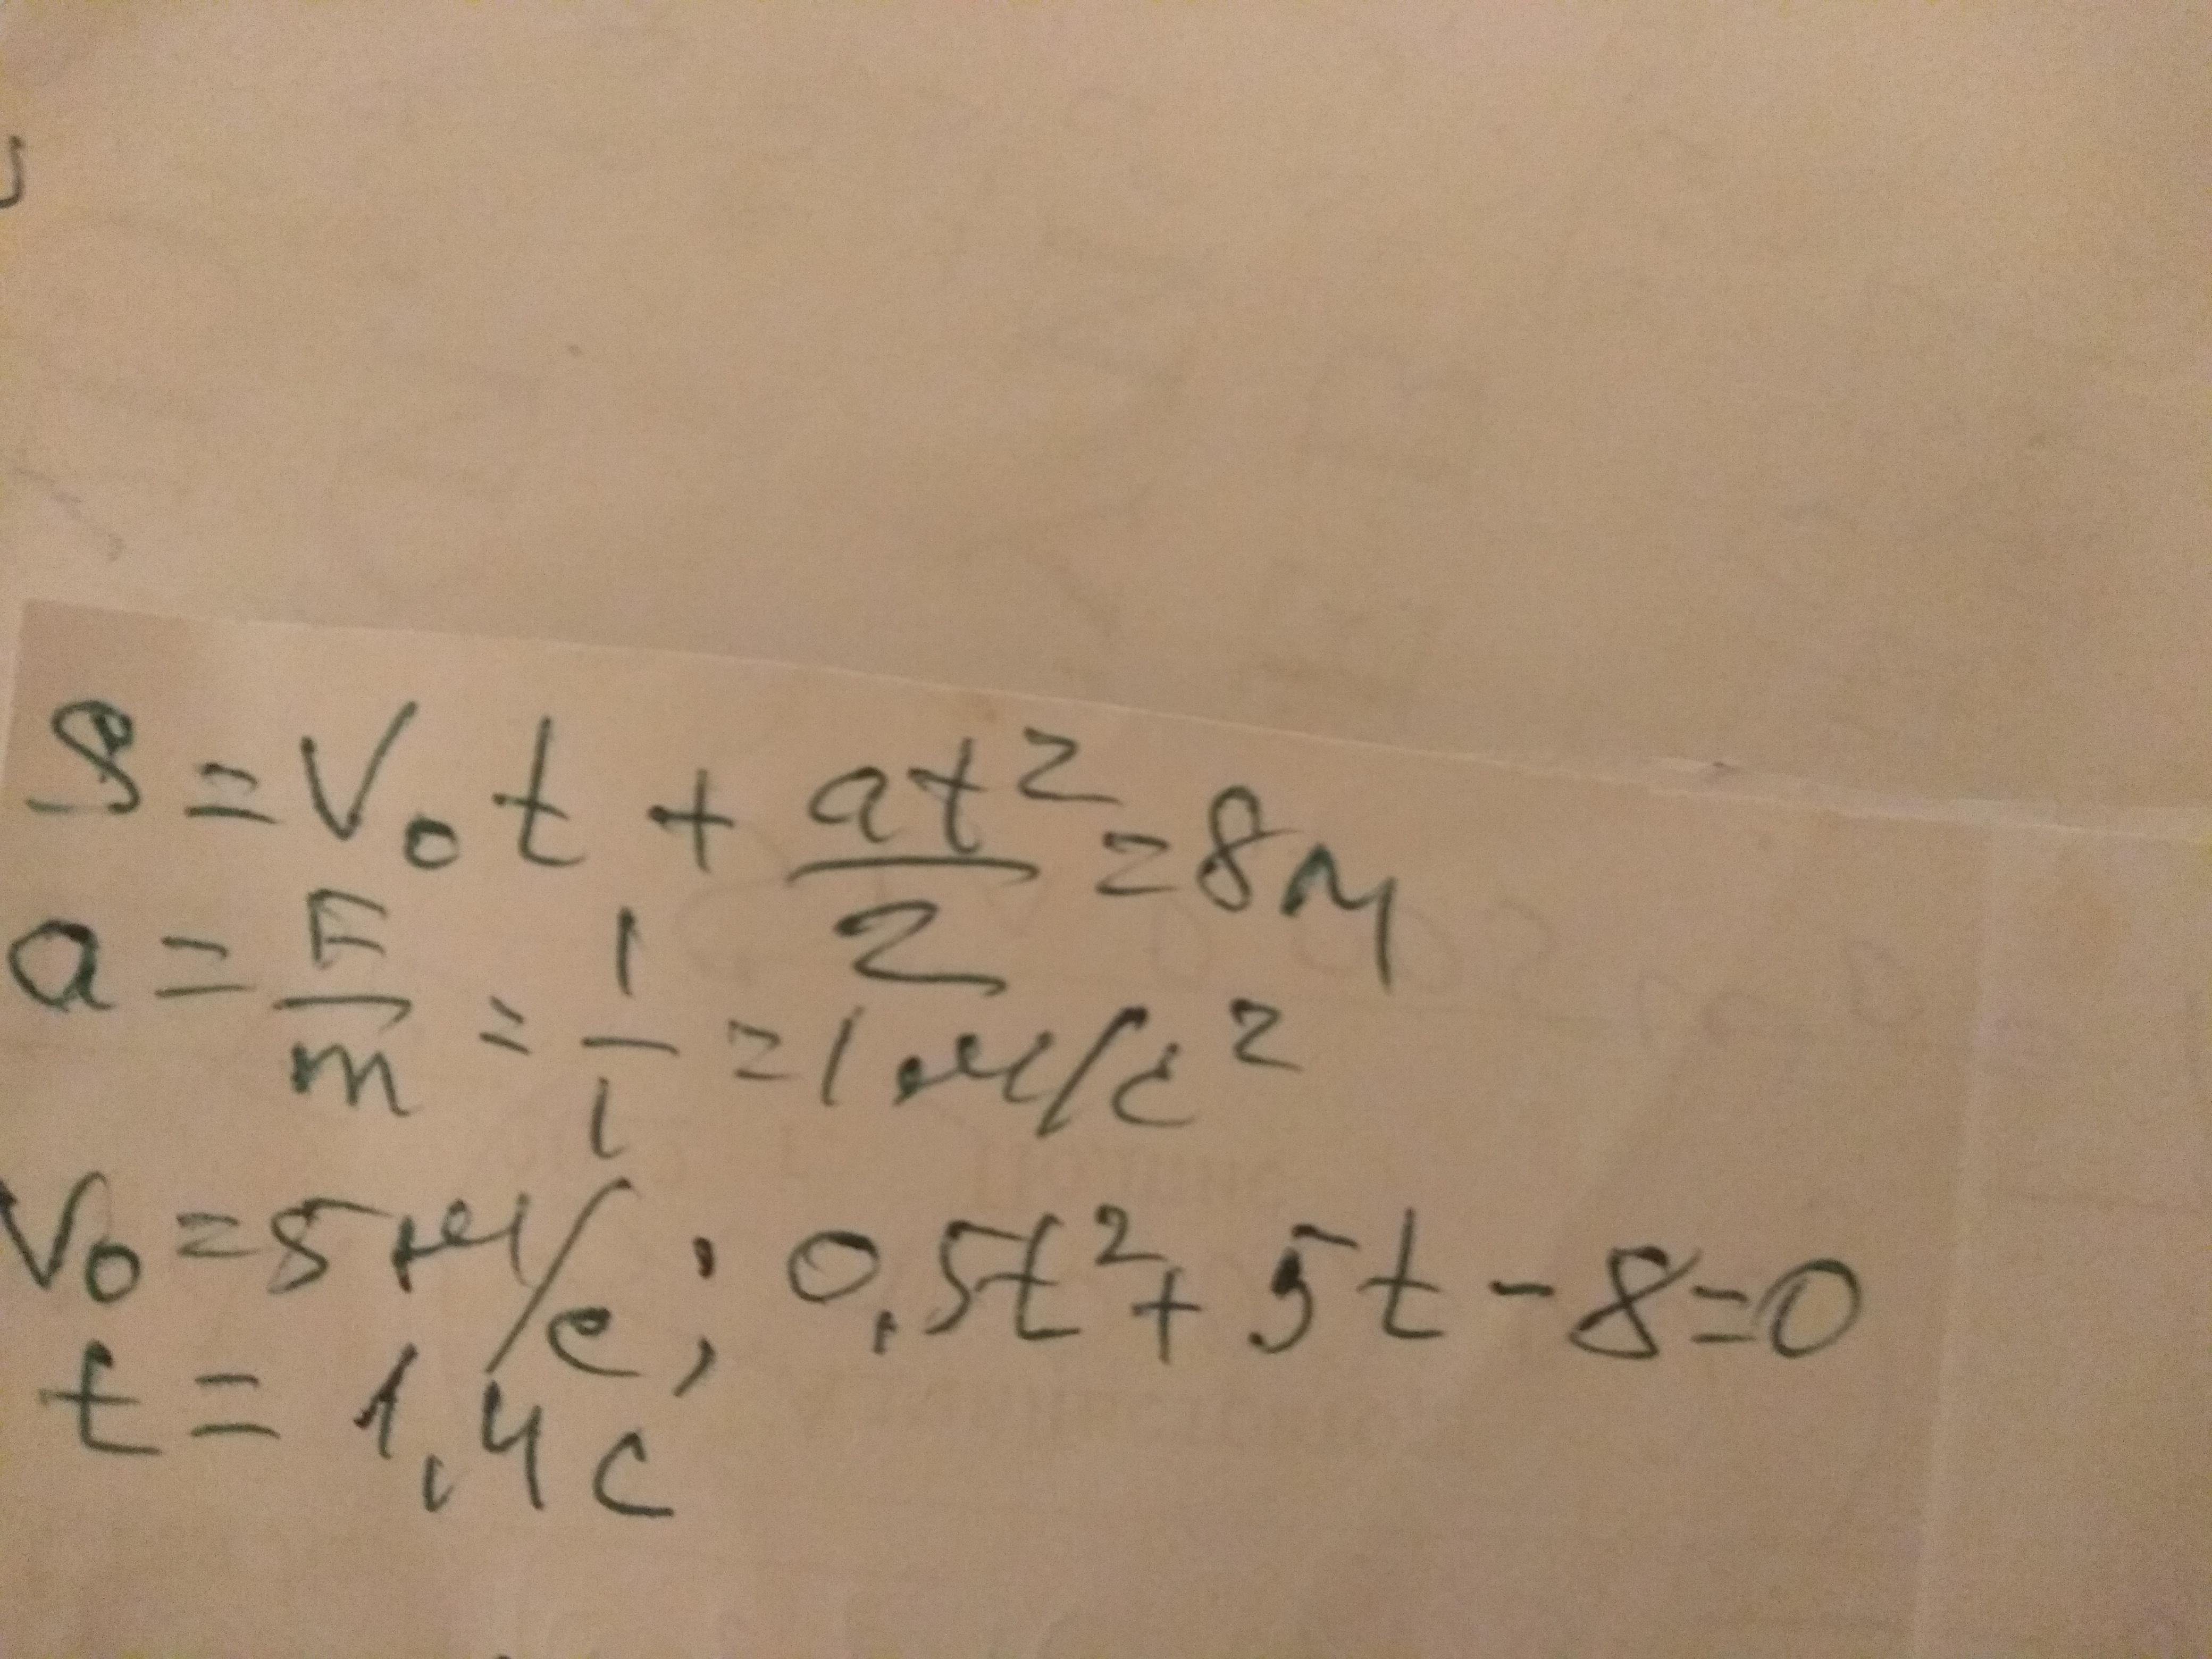 S = V₀t + at²/2 = 8м
a = F/m = 1/1 = 1 м/с²
V₀ = 5 м/с; 0,5t² + 5t - 8 = 0
t = 1,4 с